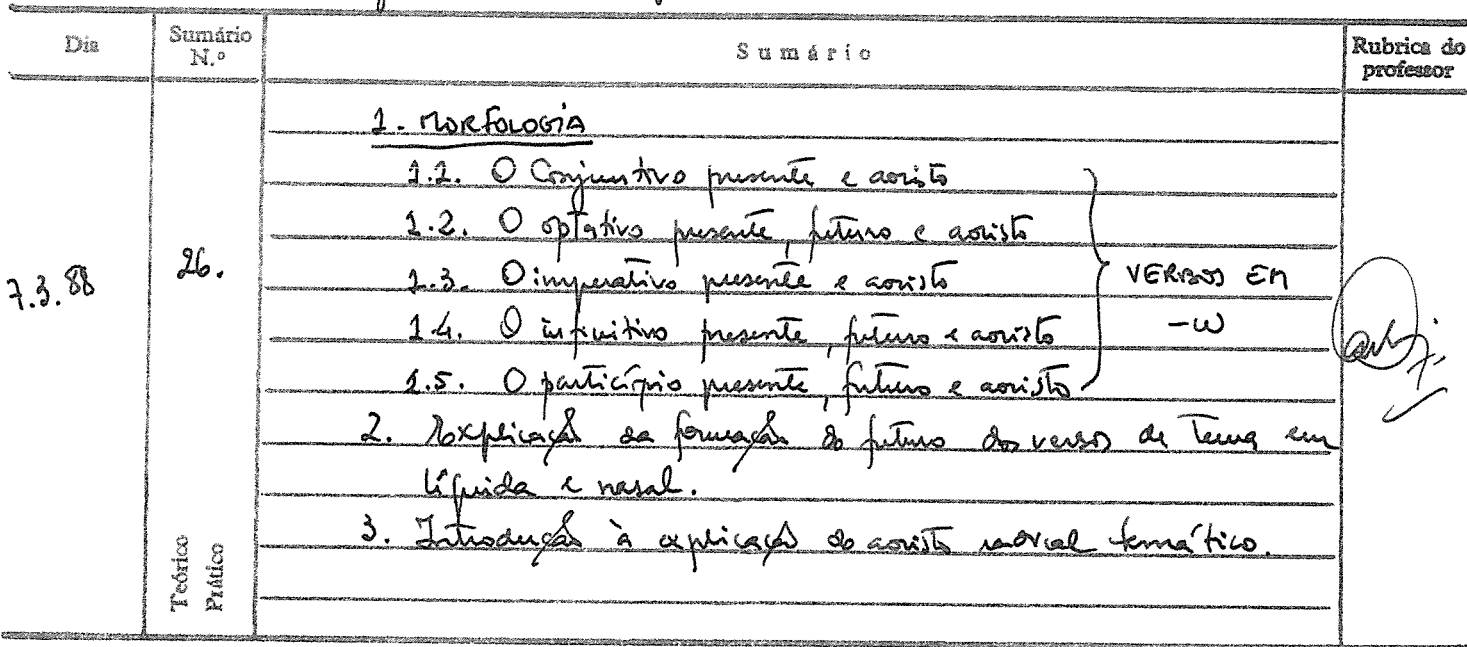 Dia
Sumário N.º
Sumário
Rubrica do professor
7.3.88
26.
Teórico
Prático
1. MORFOLOGIA
1.1. O Conjuntivo presente e aoristo
1.2. O optativo presente, futuro e aoristo
1.3. O imperativo presente e aoristo
1.4. O infinitivo presente, futuro e aoristo
1.5. O particípio presente, futuro e aoristo
VERBOS EM
-ω
2. Explicação da formação do futuro dos verbos de Tema em
líquida e nasal.
3. Introdução à explicação do aoristo radical temático.